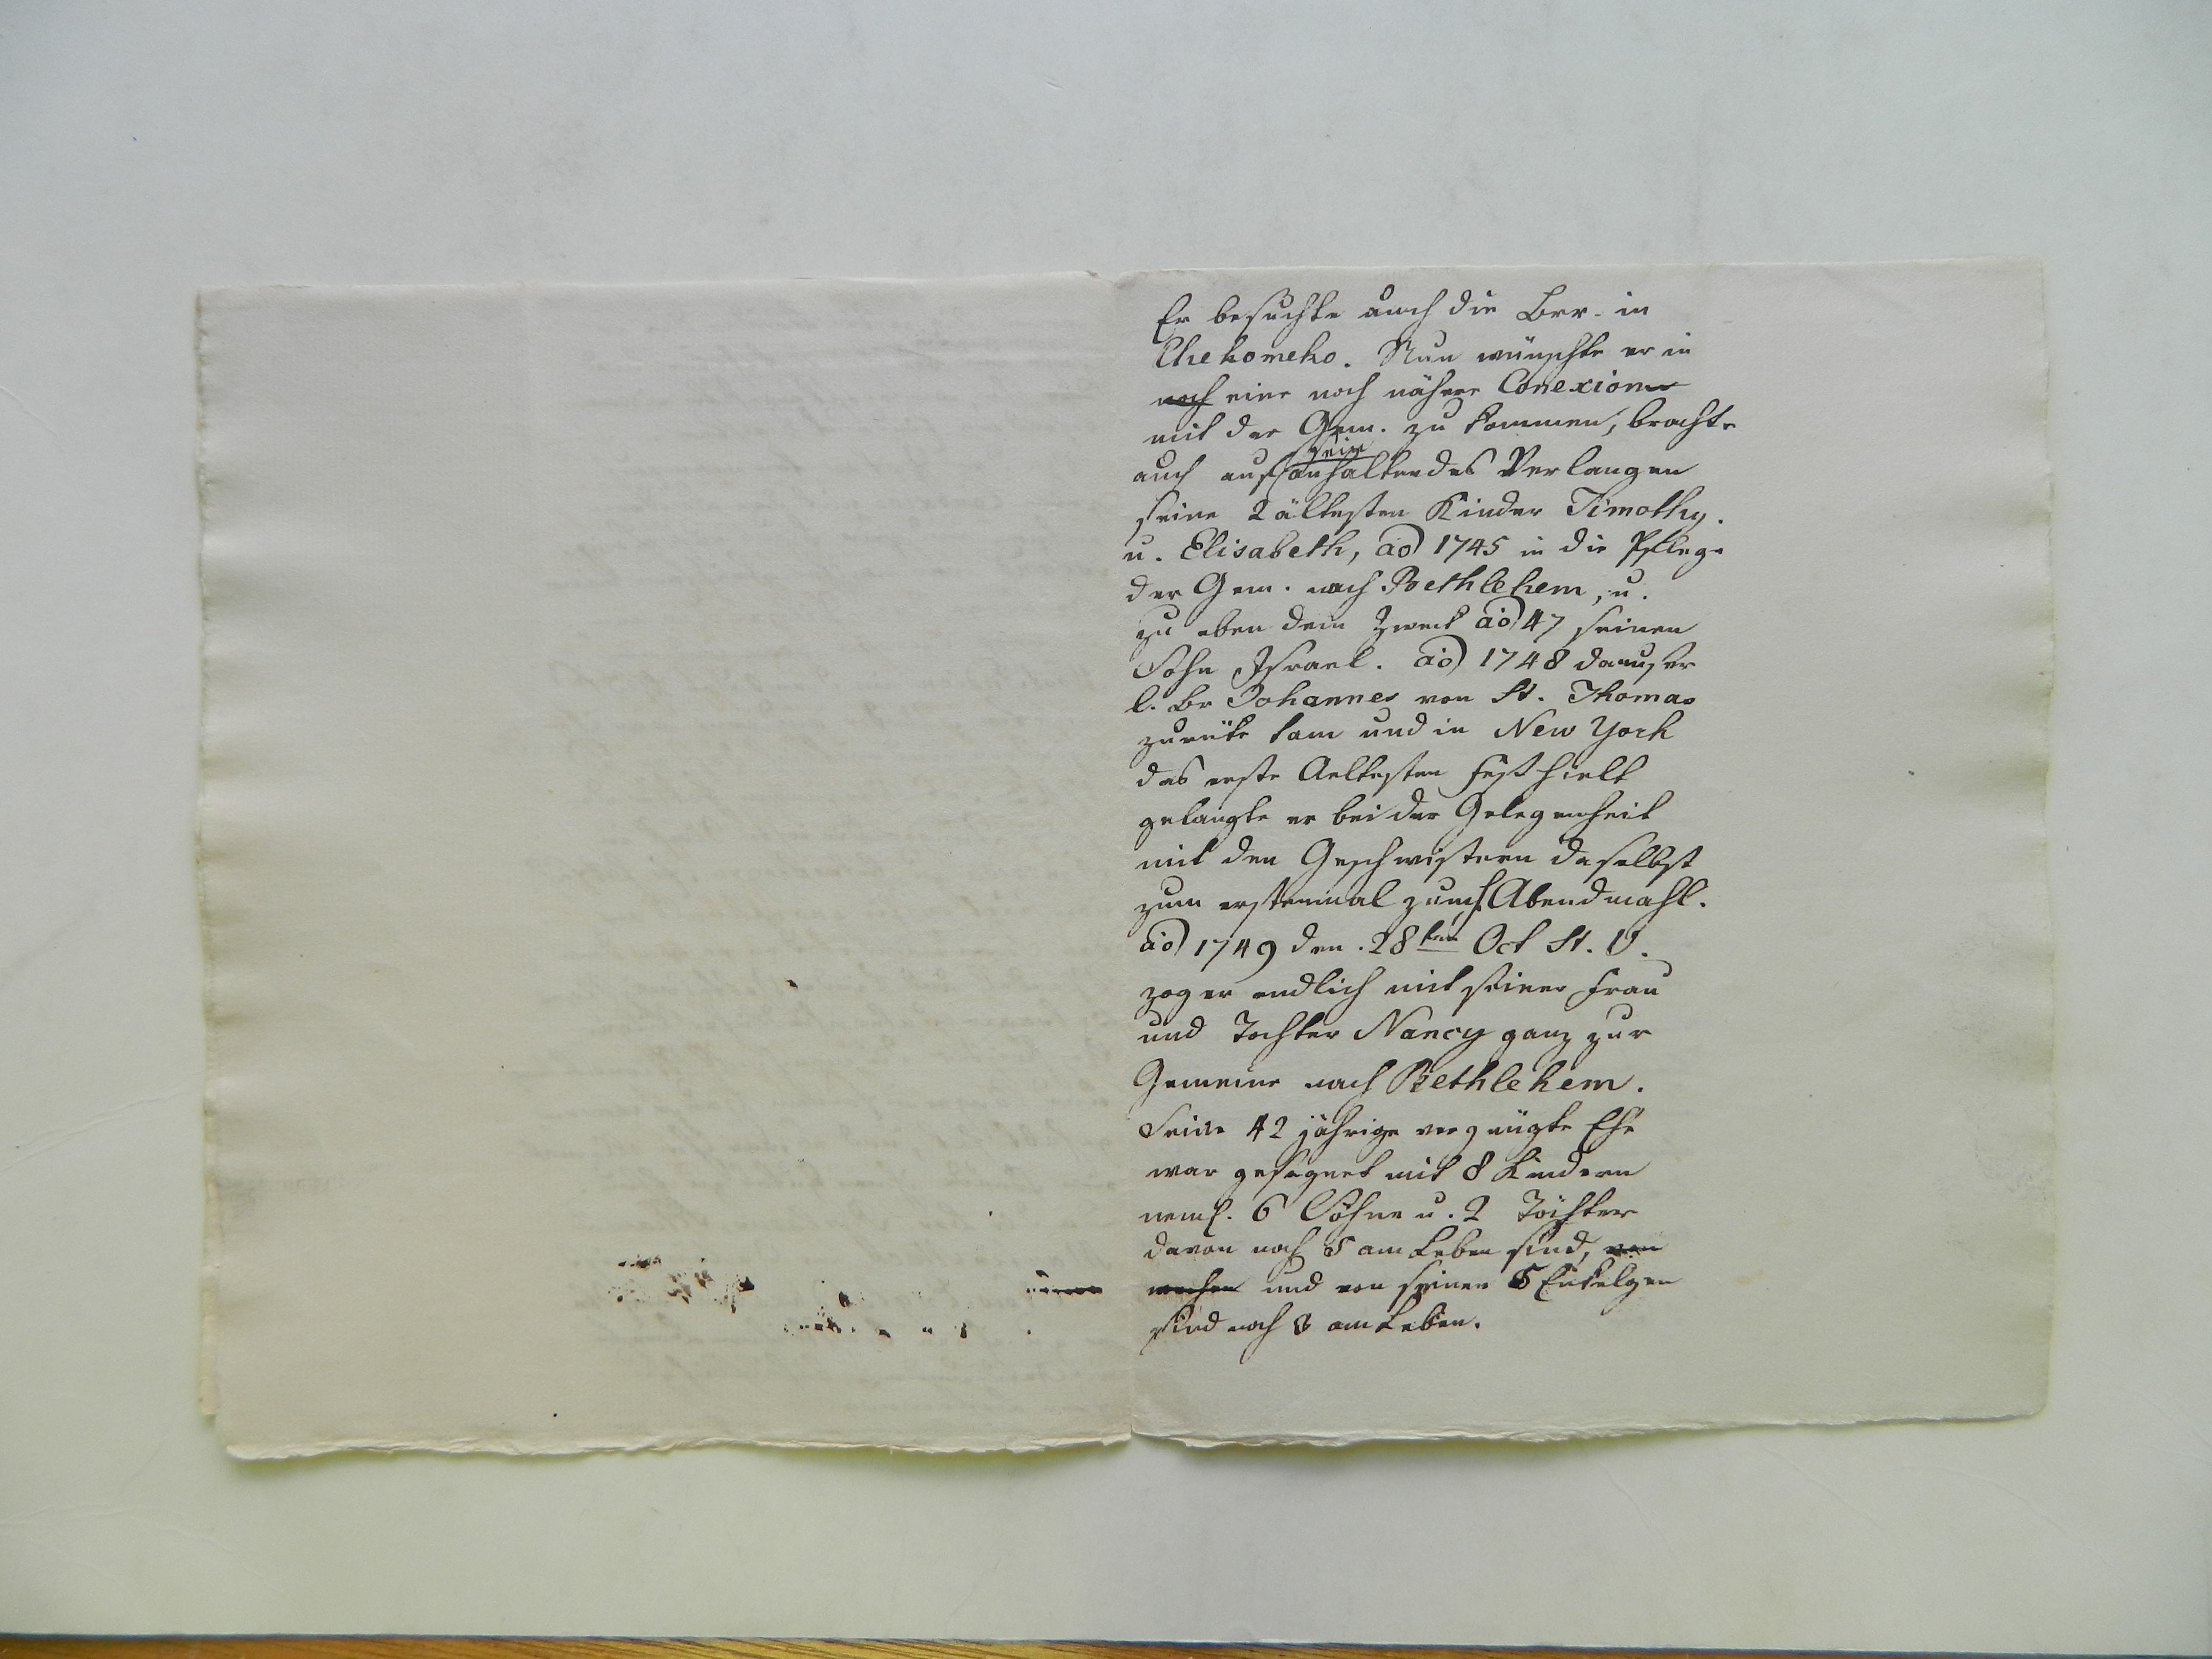 Er besuchte auch die Brr. in
Chekomeko. Nun wünschte er in
noch eine noch nähere Conexion
mit der Gem. zu kommen, brachte
auch auf sein anhaltendes Verlangen
seine 2 ältesten Kinder Timothy.
u. Elisabeth, ao 1745 in die Pflege
der Gem. nach Bethlehem, u.
zu eben dem Zweck ao 47 seinen
Sohn Israel. ao 1748 da unser
l. Br Johannes von St. Thomas
zurükke kam und in New York
das erste Aeltesten Fest hielt
gelangte er bei der Gelegenheit
mit den Geschwistern daselbst
zum erstenmal zum h. Abendmahl.
ao 1749 den 28ten Oct St. V.
zog er endlich mit seiner Frau
und Tochter Nancy ganz zur
Gemeine nach Bethlehem.
Seine 42 jährige vergnügte Ehe
war gesegnet mit 8 Kindern
neml. 6 Söhne u. 2 Töchter
davon noch 5 am Leben sind, von
und von seinen 5 Enkelgen
sind noch 3 am Leben.